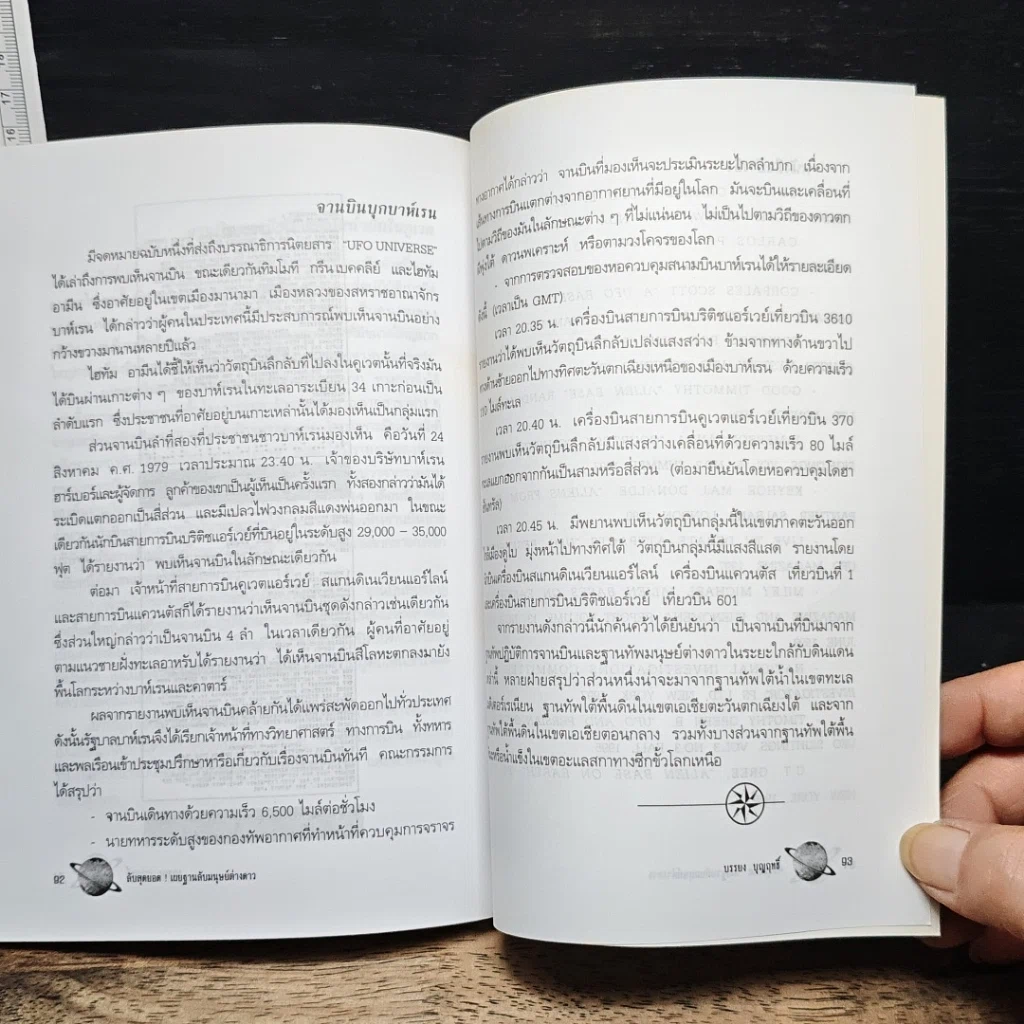 จานบินบุกบาห์เรน
มีจดหมายฉบับหนึ่งที่ส่งถึงบรรณาธิการนิตยสาร "UFO UNIVERSE"
ได้เล่าถึงการพบเห็นจานบิน ขณะเดียวกันทิมโมที กรีน เบคคลีย์ และไฮทัม
อามีน ซึ่งอาศัยอยู่ในเขตเมืองมานามา เมืองหลวงของสหราชอาณาจักร
บาห์เรน ได้กล่าวว่าผู้คนในประเทศนี้มีประสบการณ์พบเห็นจานบินอย่าง
กว้างขวางมานานหลายปีแล้ว
ไฮทัม อามีนได้ชี้ให้เห็นว่าวัตถุบินลึกลับที่ไปลงในคูเวตนั้นที่จริงมัน
ได้บินผ่านเกาะต่าง ๆ ของบาห์เรนในทะเลอาระเบียน 34 เกาะก่อนเป็น
ลำดับแรก ซึ่งประชาชนที่อาศัยอยู่บนเกาะเหล่านั้นได้มองเห็นเป็นกลุ่มแรก
ส่วนจานบินลำที่สองที่ประชาชนชาวบาห์เรนมองเห็น คือวันที่ 24
สิงหาคม ค.ศ. 1979 เวลาประมาณ 23.40 น. เจ้าของบริษัทบาห์เรน
ฮาร์เบอร์และผู้จัดการ ลูกค้าของเขาเป็นผู้เห็นเป็นครั้งแรก ทั้งสองกล่าวว่ามันได้
ระเบิดแตกออกเป็นสี่ส่วน และมีเปลวไฟวงกลมสีแดงพ่นออกมา ในขณะ
เดียวกันนักบินสายการบินบริติชแอร์เวย์ที่บินอยู่ในระดับสูง 29,000 – 35,000
ฟุต ได้รายงานว่า พบเห็นจานบินในลักษณะเดียวกัน
ต่อมา เจ้าหน้าที่สายการบินคูเวตแอร์เวย์ สแกนดิเนเวียนแอร์ไลน์
และสายการบินแควนตัสก็ได้รายงานว่าเห็นจานบินชุดดังกล่าวเช่นเดียวกัน
ซึ่งส่วนใหญ่กล่าวว่าเป็นจานบิน 4 ลำ ในเวลาเดียวกัน ผู้คนที่อาศัยอยู่
ตามแนวชายฝั่งทะเลอาหรับได้รายงานว่า ได้เห็นจานบินสีโลหะตกลงมายัง
พื้นโลกระหว่างบาห์เรนและคาตาร์
ผลจากรายงานพบเห็นจานบินคล้ายกันได้แพร่สะพัดออกไปทั่วประเทศ
ดังนั้นรัฐบาลบาห์เรนจึงได้เรียกเจ้าหน้าที่ทางวิทยาศาสตร์ ทางการบิน ทั้งทหาร
และพลเรือนเข้าประชุมปรึกษาหารือเกี่ยวกับเรื่องจานบินทันที คณะกรรมการ
ได้สรุปว่า
- จานบินเดินทางด้วยความเร็ว 6,500 ไมล์ต่อชั่วโมง
- นายทหารระดับสูงของกองทัพอากาศที่ทำหน้าที่ควบคุมการจราจร
92 ลับสุดยอด ! เผยฐานลับมนุษย์ต่างดาว
ทางอากาศได้กล่าวว่า จานบินที่มองเห็นจะประเมินระยะไกลลำบาก เนื่องจาก
เส้นทางการบินแตกต่างจากอากาศยานที่มีอยู่ในโลก มันจะบินและเคลื่อนที่
ไปตามวิถีของมันในลักษณะต่าง ๆ ที่ไม่แน่นอน ไม่เป็นไปตามวิถีของดาวตก
ผีพุ่งไต้ ดาวนพเคราะห์ หรือตามวงโคจรของโลก
- จากการตรวจสอบของหอควบคุมสนามบินบาห์เรนได้ให้รายละเอียด
ดังนี้ (เวลาเป็น GMT)
เวลา 20.35 น. เครื่องบินสายการบินบริติชแอร์เวย์เที่ยวบิน 3610
รายงานว่าได้พบเห็นวัตถุบินลึกลับเปล่งแสงสว่าง ข้ามจากทางด้านขวาไป
ทางด้านซ้ายออกไปทางทิศตะวันตกเฉียงเหนือของเมืองบาห์เรน ด้วยความเร็ว
ไมล์ทะเล
เวลา 20.40 น. เครื่องบินสายการบินคูเวตแอร์เวย์เที่ยวบิน 370
รายงานพบเห็นวัตถุบินลึกลับมีแสงสว่างเคลื่อนที่ด้วยความเร็ว 80 ไมล์
และแยกออกจากกันเป็นสามหรือสี่ส่วน (ต่อมายืนยันโดยหอควบคุมโดฮา
เวลา 20.45 น. มีพยานพบเห็นวัตถุบินกลุ่มนี้ในเขตภาคตะวันออก
เมืองดูไบ มุ่งหน้าไปทางทิศใต้ วัตถุบินกลุ่มนี้มีแสงสีแสด รายงานโดย
เครื่องบินสแกนดิเนเวียนแอร์ไลน์ เครื่องบินแควนตัส เที่ยวบินที่ 1
และเครื่องบินสายการบินบริติชแอร์เวย์ เที่ยวบิน 601
จากรายงานดังกล่าวนี้นักค้นคว้าได้ยืนยันว่า เป็นจานบินที่บินมาจาก
ฐานทัพปฏิบัติการจานบินและฐานทัพมนุษย์ต่างดาวในระยะใกล้กับดินแดน
เหล่านี้ หลายฝ่ายสรุปว่าส่วนหนึ่งน่าจะมาจากฐานทัพใต้น้ำในเขตทะเล
เมดิเตอร์เรเนียน ฐานทัพใต้พื้นดินในเขตเอเชียตะวันตกเฉียงใต้ และจาก
ฐานทัพใต้พื้นดินในเขตเอเชียตอนกลาง รวมทั้งบางส่วนจากฐานทัพใต้พื้น
น้ำแข็งในเขตอะแลสกาทางซีกขั้วโลกเหนือ
บรรยง บุญฤทธิ์ 93
16
17